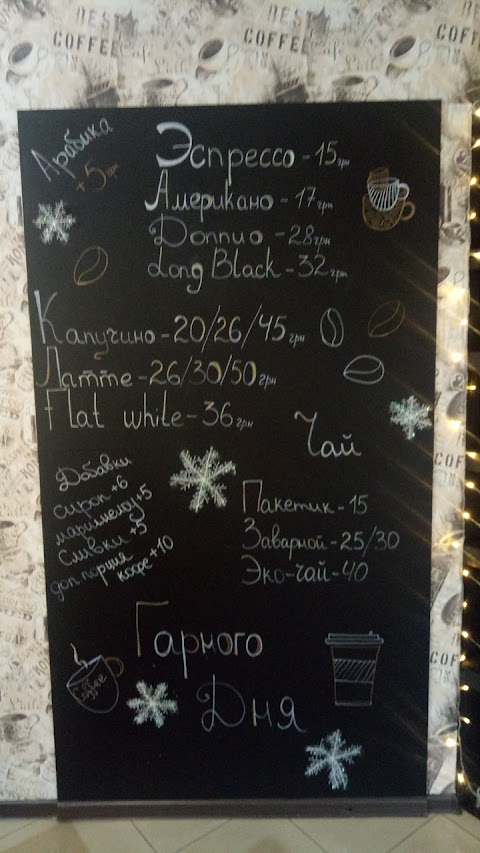 Арабика
+5грн
Эспрессо - 15грн
Американо - 17грн
Доппио - 28грн
Long Black - 32грн
Капучино - 20/26/45грн
Латте - 26/30/50грн
Flat white - 36грн
Чай
Добавки
сироп +6
маршмелоу +5
Сливки +5
доп порция
кофе +10
Пакетик - 15
Заварной - 25/30
Эко-чай - 40
Гарного
Дня
Coffee
BEST
COFFEE
COFFEE
COFFEE